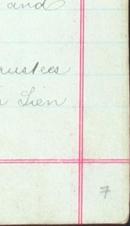 and
rustees
Lien
7